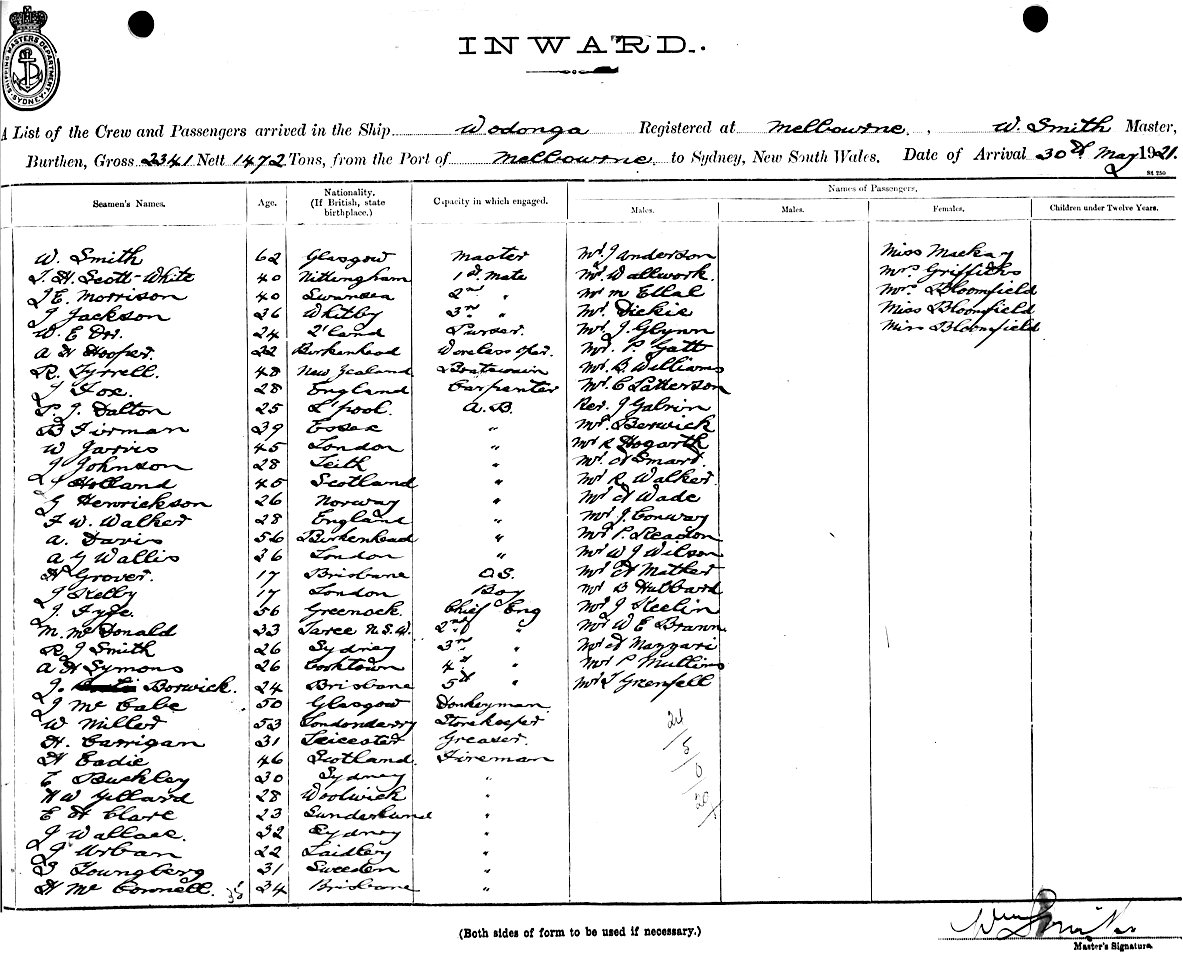 SHIPPING MASTERS DEPARTMENT SYDNEY
INWARD.
A List of the Crew and Passengers arrived in the Ship Wodonga Registered at Melbourne, W. Smith Master,
Burthen, Gross 2341 Nett 1472 Tons, from the Port of Melbourne to Sydney, New South Wales, Date of Arrival 30th May 1921.
St 250
Seamen's Names. Age. Nationality. (If British, state birthplace.) Capacity in which engaged. Names of Passengers.
Males. Males. Females. Children under Twelve Years.
W. Smith 62 Glasgow master Mr J Anderson Miss Mackay
T. H. Scott-White 40 Nittingham 1st mate Mr Wallwork Mrs Griffiths
J E. Morrison 40 Swansea 2nd " Mr M Ellal Mrs Bloomfield
J Jackson 36 Whitby 3rd " Mr Dickie Miss Bloomfield
W. E 24 Purser. Mr J. Glynn Miss Bloomfield
A H Hooper. 22 Birkenhead Wireless Oper. Mr P. Gatt
R. Tyrrell. 48 New Zealand Boatswain Mr B Williams
J Fox. 28 England Carpenter Mr C Patterson
P. J. Dalton 25 L'pool. A.B. Rev. J Galvin
B Firman 39 Essex " Mr. Berwick
W Jarvis 45 London " Mr R Hogarth
J Johnson 28 Leith " Mr. H Smart.
J Holland 45 Scotland " Mr R Walker.
G Henrickson 26 Norway " Mr H Wade
F W. Walker 28 England " Mr J. Conway
A. Davis 56 Birkenhead " Mr P. Reardon
A G Wallis 36 London " Mr W J Wilson
H Grover. 17 Brisbane O.S. Mr H Mather
J Kelly 17 London Boy Mr B Hubbard
J. Fyfe. 56 Greenock. Chief Eng Mr J Keelin
M. McDonald 33 Taree N.S.W. 2nd " Mr W E Brann
R J Smith 26 Sydney 3rd " Mr H Mazzari
A H Symons 26 Cooktown 4th " Mr P Mullins
J. Borwick. 24 Brisbane 5th " Mr T Greenfell
J McCabe 50 Glasgow Donkeyman
W Miller 53 Londonderry Storekeeper 24
H. Carrigan 31 Leicester Greaser. 5
H Eadie 46 Scotland Fireman 0
E Buckley 30 Sydney "
H W Gillard 28 Woolwich "
E H Clare 23 Sunderland "
J Wallace 32 Sydney "
J Urban 22 Laidley "
S Youngberg 31 Sweden "
H McConnell. 35 34 Brisbane "
(Both sides of form to be used if necessary.)
Wm Smith
Master's Signature.